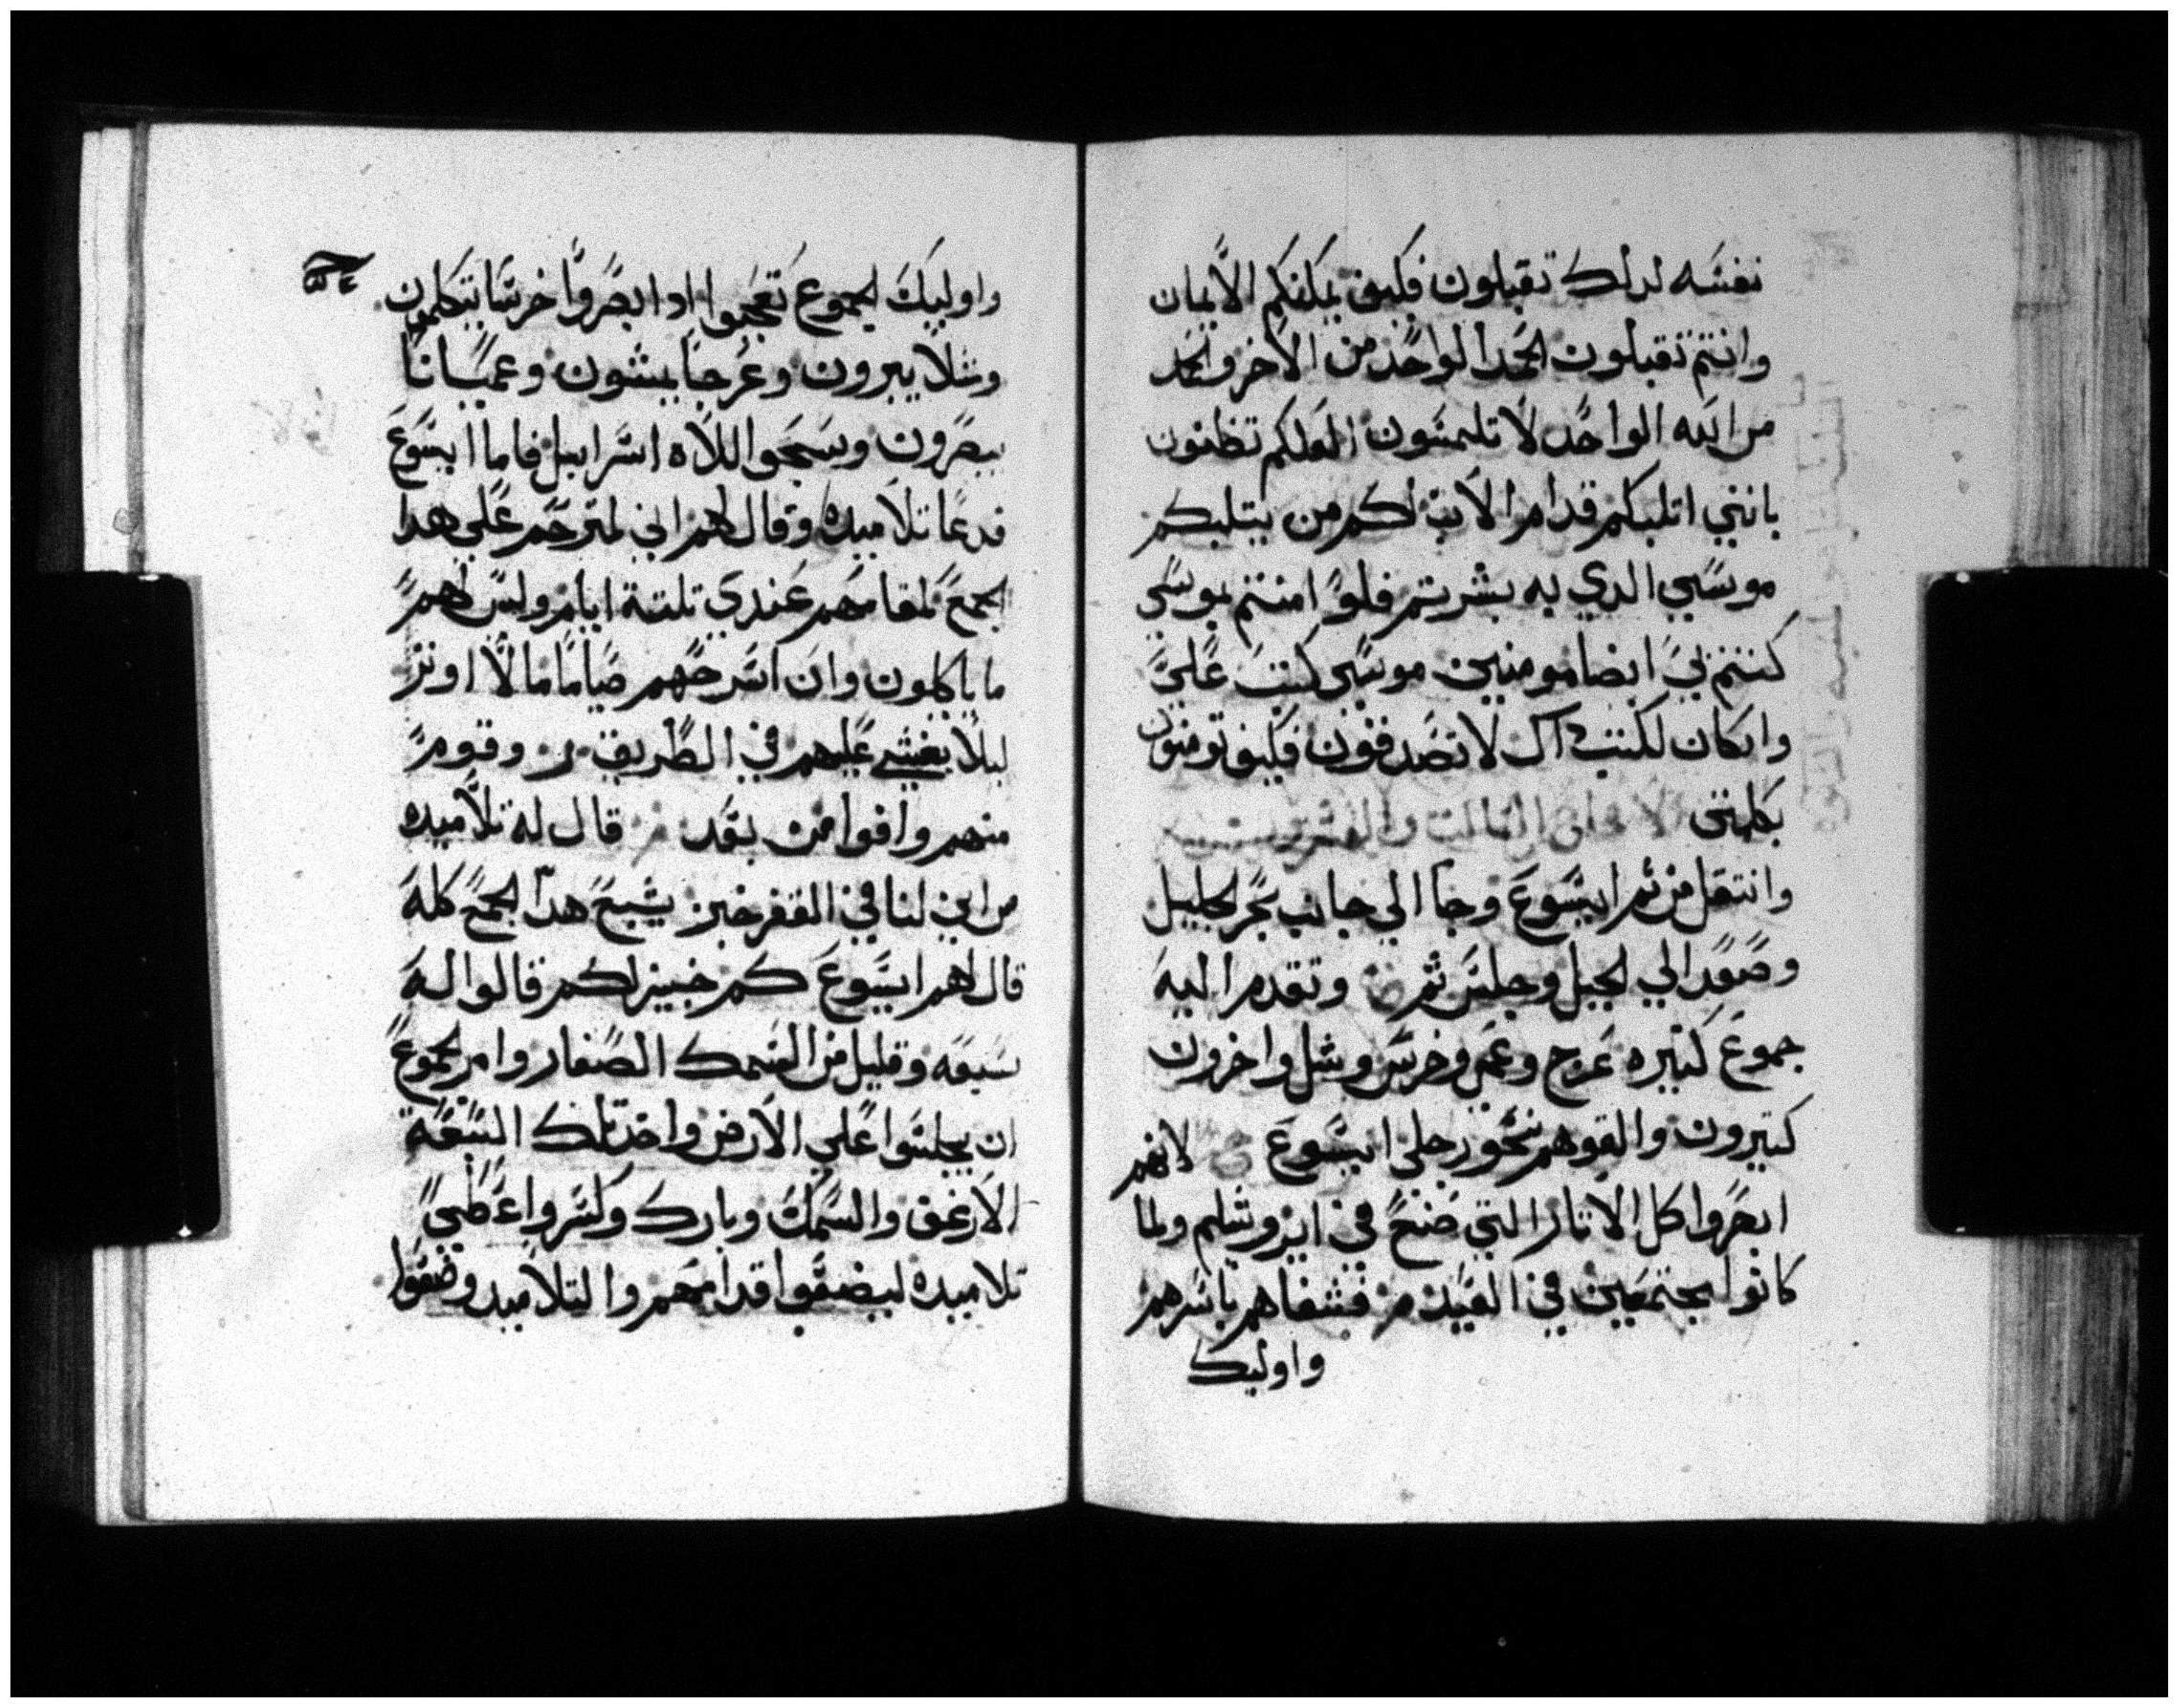 نفسه لدلك تقبلون فكيف يمكنكم الايمان
وانتم تقبلون المجد الواحد من الاخر والحمد
من الله الواحد لا تلتمسون العلكم تظنون
بانني اتلبكم قدام الاب لكم من يتلبكم
موسي الدي به بشرتم فلو امنتم بموسي
كنتم بي ايضا مومنين موسي كتب علي
وان كان لكتب داك لا تصدقون فكيف تومنون
بكلمتي الاصحاح الثالث والعشرون
وانتقل من ثم ايسوع وجا الي جانب بحر الجليل
وصعد الي الجبل وجلس ثم وتقدم اليه
جموع كتيره عرج وعمي وخرس وشل واخرون
كتيرون والقوهم نحو رجلي ايسوع لانهم
ابصروا كل الاتار التي صنع في ايروشليم ولما
كانوا مجتمعين في العيد فشفاهم باسرهم
واوليك
واوليك الجموع تعجبوا ادا ابصروا خرسا يتكلمون
وشلا يبرون وعرجا يمشون وعميانا
يبصرون وسبحوا للاه اسراييل فاما ايسوع
فدعا تلاميده وقال لهم اني لمترحم علي هدا
الجمع لمقامهم عندي تلتة ايام وليس لهم
ما ياكلون وان اسرحهم صياما ما لا اوتر
ليلا يغشي عليهم في الطريق وقوم
منهم وافوا من بعد قال له تلاميده
من اين لنا في القفر خبز يشبع هدا الجمع كله
قال لهم ايسوع كم خبيز لكم قالوا له
سبعه وقليل من السمك الصغار وامر الجموع
ان يجلسوا علي الارض واخد تلك السبعة
الارغف والسمك وبارك وكسر واعطي
تلاميده ليضعوا قدامهم والتلاميد وضعوا